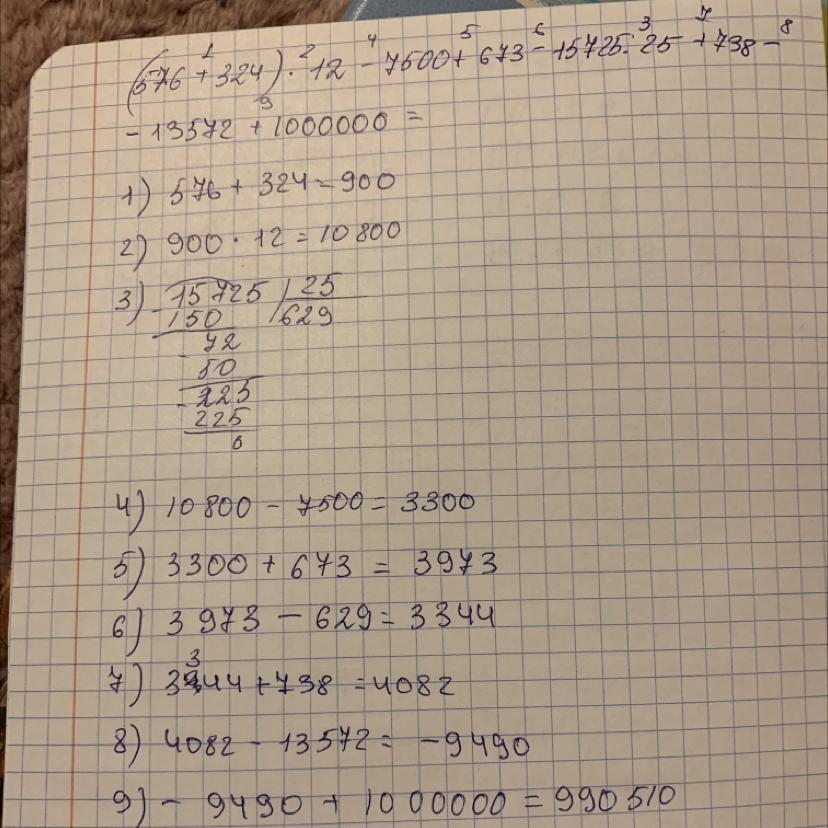 (576 + 324) · 12 - 7500 + 673 - 15725 : 25 + 738 -
- 13572 + 1000000 =
1) 576 + 324 = 900
2) 900 · 12 = 10800
3) 15725 | 25
150 629
72
50
225
225
0
4) 10800 - 7500 = 3300
5) 3300 + 673 = 3973
6) 3973 - 629 = 3344
7) 3344 + 738 = 4082
8) 4082 - 13572 = -9490
9) - 9490 + 1000000 = 990510